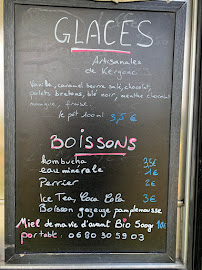 GLACES
Artisanales
de Kergonc
Vanille, caramel beurre salé, chocolat,
palets bretons, blé noir, menthe chocolat
mangue, fraise.
le pot 100ml 3,5 €
BOISSONS
kombucha 3,5€
eau minérale 1€
Perrier 2€
Ice Tea, Coca Cola 3€
Boisson gazeuze pamplemousse
Miel de marie d'avant Bio 500g 10€
portable: 06 80 30 59 03